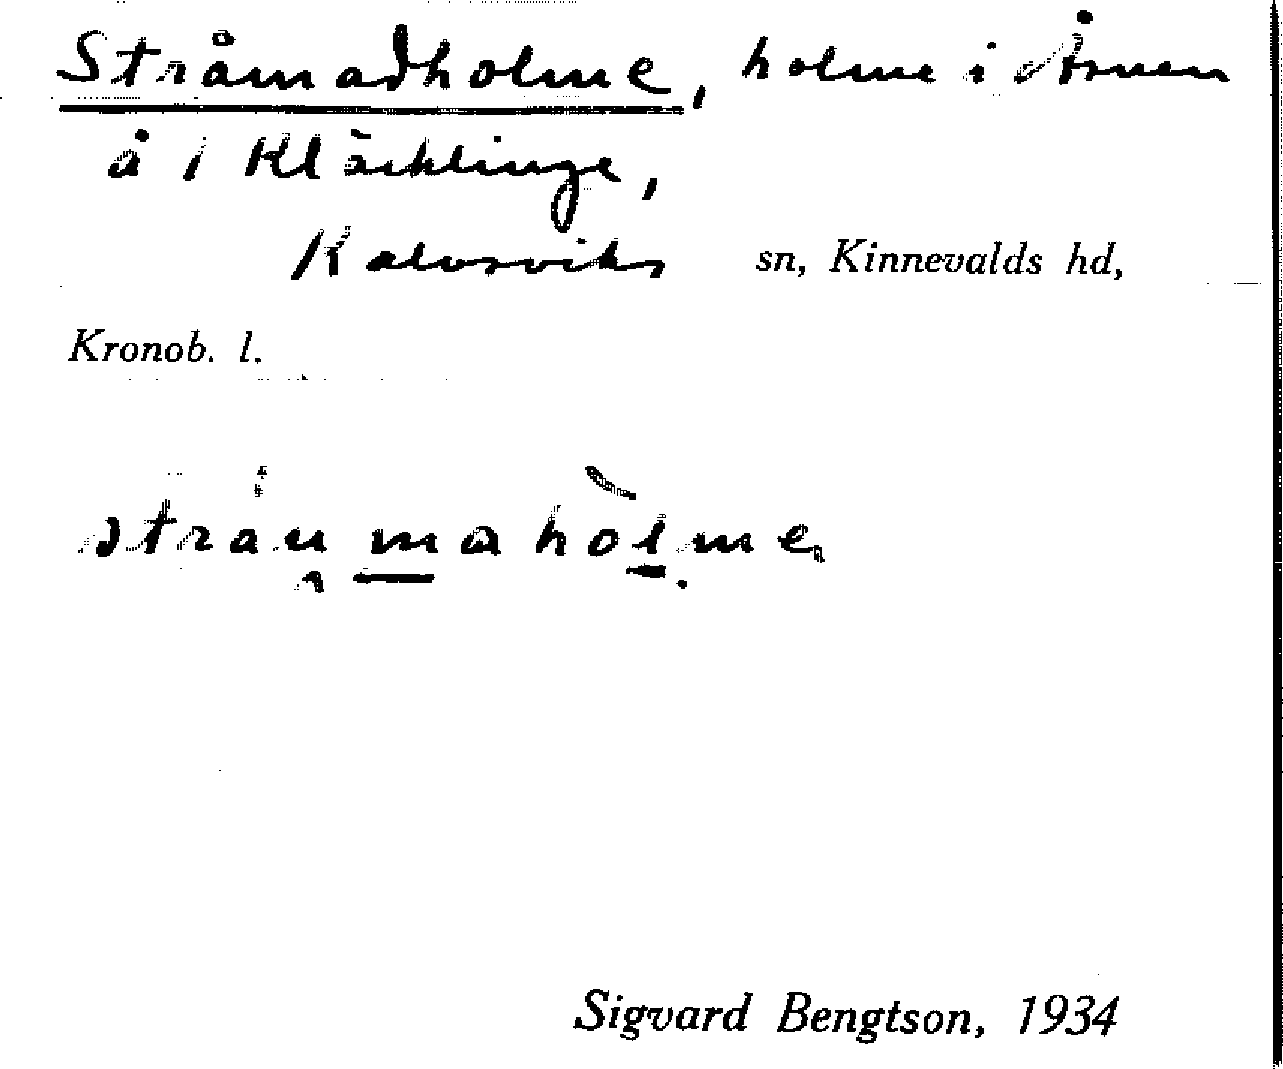 Stråmadholme, holme i Åsnen
å i Kläcklinge,
Kalvsviks sn, Kinnevalds hd,
Kronob. l.
strau̯maholme
Sigvard Bengtson, 1934